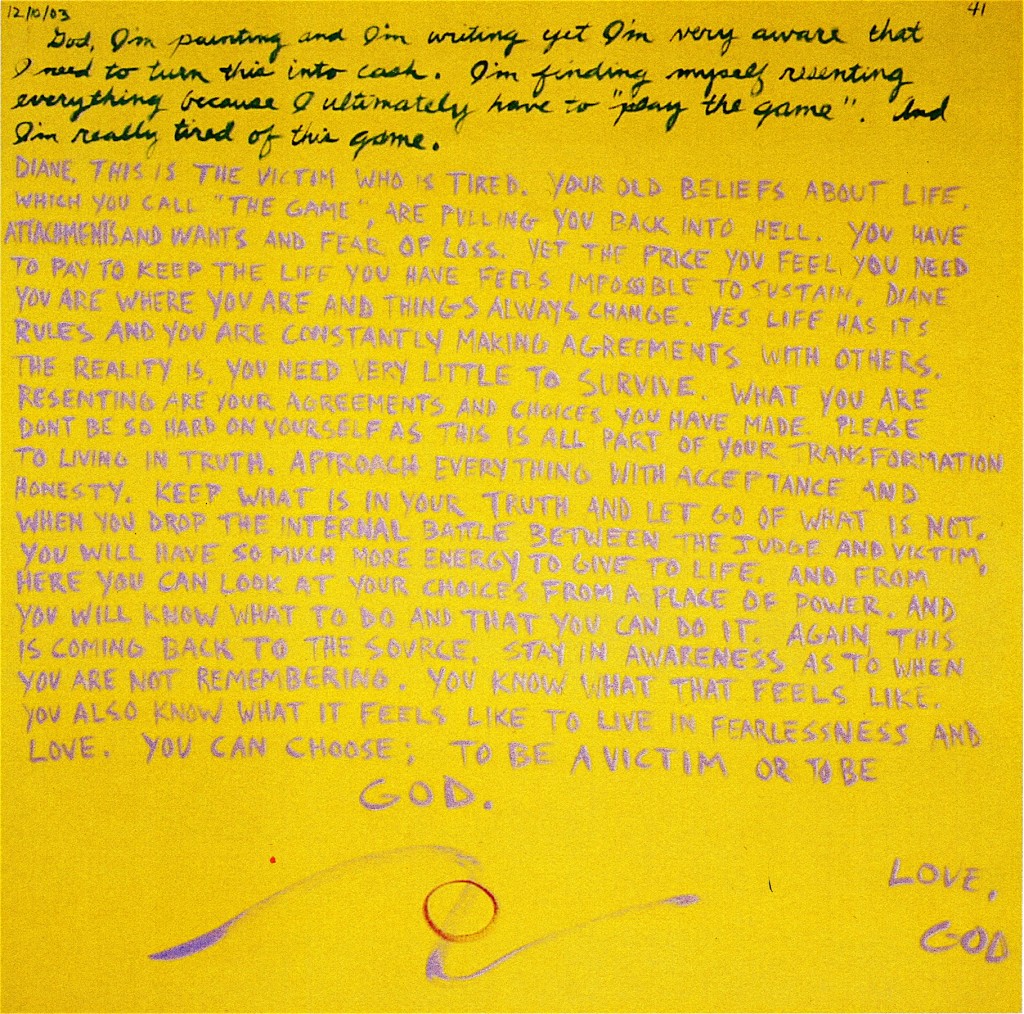 12/10/03
41
God, I'm painting and I'm writing yet I'm very aware that
I need to turn this into cash. I'm finding myself resenting
everything because I ultimately have to "play the game". And
I'm really tired of this game.
DIANE, THIS IS THE VICTIM WHO IS TIRED. YOUR OLD BELIEFS ABOUT LIFE,
WHICH YOU CALL "THE GAME", ARE PULLING YOU BACK INTO HELL. YOU HAVE
ATTACHMENTS AND WANTS AND FEAR OF LOSS. YET THE PRICE YOU FEEL, YOU NEED
TO PAY TO KEEP THE LIFE YOU HAVE FEELS IMPOSSIBLE TO SUSTAIN. DIANE
YOU ARE WHERE YOU ARE AND THINGS ALWAYS CHANGE. YES LIFE HAS ITS
RULES AND YOU ARE CONSTANTLY MAKING AGREEMENTS WITH OTHERS.
THE REALITY IS, YOU NEED VERY LITTLE TO SURVIVE. WHAT YOU ARE
RESENTING ARE YOUR AGREEMENTS AND CHOICES YOU HAVE MADE. PLEASE
DONT BE SO HARD ON YOURSELF AS THIS IS ALL PART OF YOUR TRANSFORMATION
TO LIVING IN TRUTH. APPROACH EVERYTHING WITH ACCEPTANCE AND
HONESTY. KEEP WHAT IS IN YOUR TRUTH AND LET GO OF WHAT IS NOT.
WHEN YOU DROP THE INTERNAL BATTLE BETWEEN THE JUDGE AND VICTIM,
YOU WILL HAVE SO MUCH MORE ENERGY TO GIVE TO LIFE. AND FROM
HERE YOU CAN LOOK AT YOUR CHOICES FROM A PLACE OF POWER. AND
YOU WILL KNOW WHAT TO DO AND THAT YOU CAN DO IT. AGAIN, THIS
IS COMING BACK TO THE SOURCE. STAY IN AWARENESS AS TO WHEN
YOU ARE NOT REMEMBERING. YOU KNOW WHAT THAT FEELS LIKE.
YOU ALSO KNOW WHAT IT FEELS LIKE TO LIVE IN FEARLESSNESS AND
LOVE. YOU CAN CHOOSE; TO BE A VICTIM OR TO BE
GOD.
LOVE,
GOD